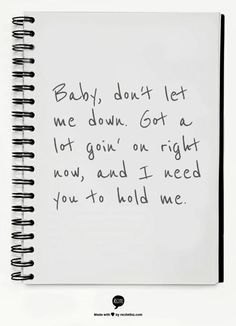 Baby, don't let
me down. Got a
lot goin' on right
now, and I need
you to hold me.
Made with ♥ by recitethis.com